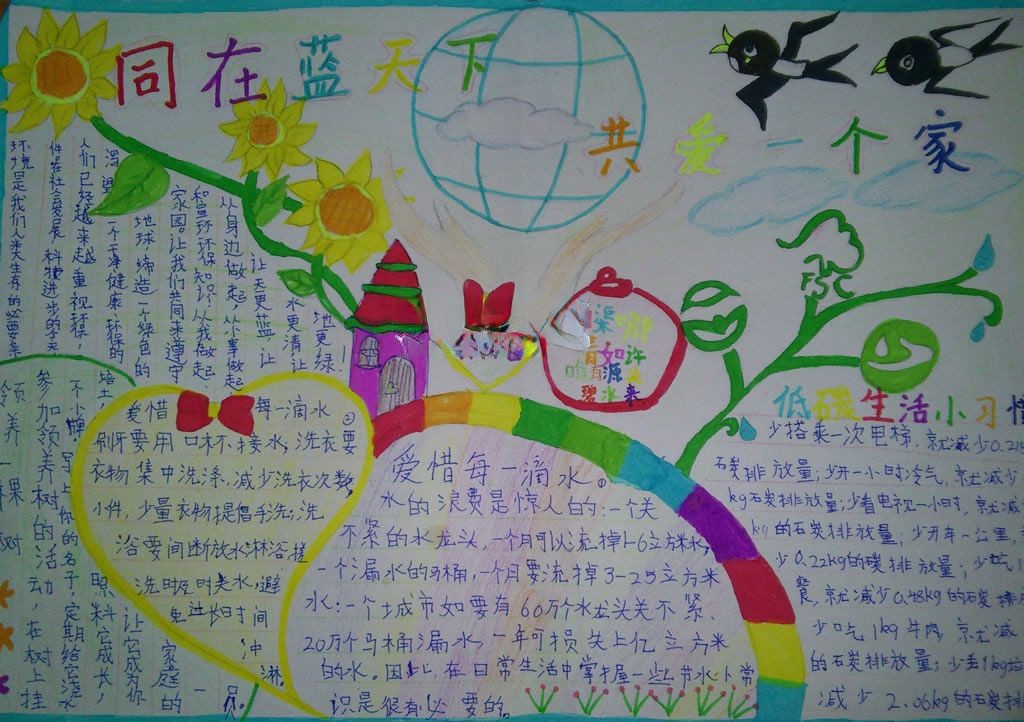 同在蓝天下
共爱一个家
环境是我们人类生存的必要条
件在社会发展科技进步的今天
人们已经越来越重视环保，
渴望一个干净健康环保的
地球缔造一个绿色的
家园。让我们共同来遵守
和宣环环保知识从我做起
从身边做起从小事做起
让天更蓝让
水更清让
地更绿！
渠哪
清如许
唯有源
碧水来
FSC
低碳生活小习惯
少搭乘一次电梯，就减少0.218
石炭排放量；少开一小时冷气，就减少
kg石炭排放量；少看电视一小时，就减
kg的石炭排放量；少开车一公里，
少0.22kg的碳排放量；少吃1
餐，就减少0.48kg的石炭排
少吃1kg牛肉，就减
的石炭排放量；少丢1kg垃
减少2.06kg的石炭排
爱惜每一滴水。
刷牙要用口杯不接水，洗衣要
衣物集中洗涤，减少洗衣次数，
小件，少量衣物提倡手洗；洗
浴要间断放水淋浴搓
洗时及时关水，避
免过长时间
冲
淋。
爱惜每一滴水。
水的浪费是惊人的：一个关
不紧的水龙头，一个月可以流掉1-6立方米水；
一个漏水的马桶，一个月要流掉3-25立方米
水；一个城市如要有60万个水龙头关不紧、
20万个马桶漏水，一年可损失上亿立方米
的水。因此，在日常生活中掌握一些节水小常
识是很有必要的。
领养一棵树
参加领养树的活动，在树上挂
不小牌，写上你的名字，定期给它浇水
培土，照料它成长，
让它成为你
家庭的
一员。